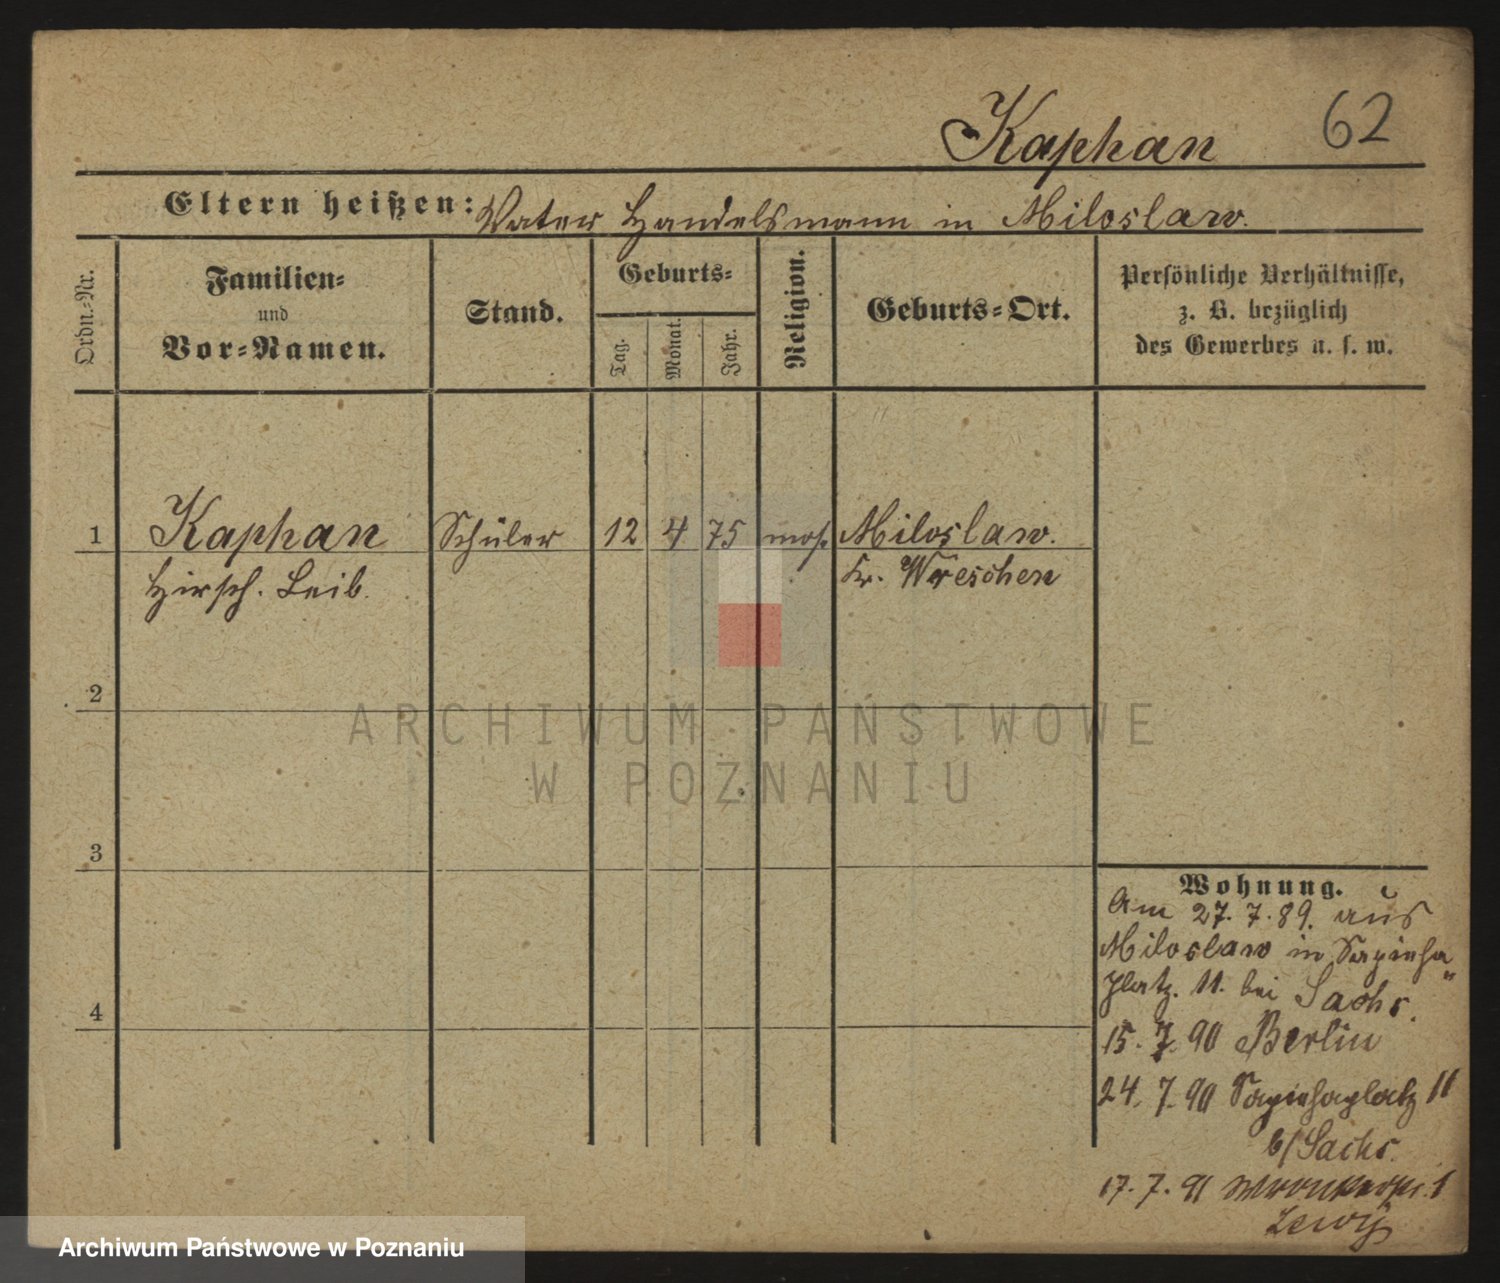 Kaphan 62
Eltern heißen: Vater Handelsmann in Miloslaw.
Ordn.-Nr.
Familien-
und
Vor-Namen.
Stand.
Geburts-
Tag.
Monat.
Jahr.
Religion.
Geburts-Ort.
Persönliche Verhältnisse,
z. B. bezüglich
des Gewerbes u. s. w.
1 Kaphan Schüler 12 4 75 mos. Miloslaw.
Hirsch. Leib. Kr. Wreschen
2
ARCHIWUM PAŃSTWOWE
W POZNANIU
3
Wohnung.
Am 27.7.89. aus
Miloslaw in Sapieha
platz. 11. bei Sachs.
4
15.7.90 Berlin
24.7.90 Sapiehaplatz 11
b/Sachs.
17.7.91 1
Lewy
Archiwum Państwowe w Poznaniu